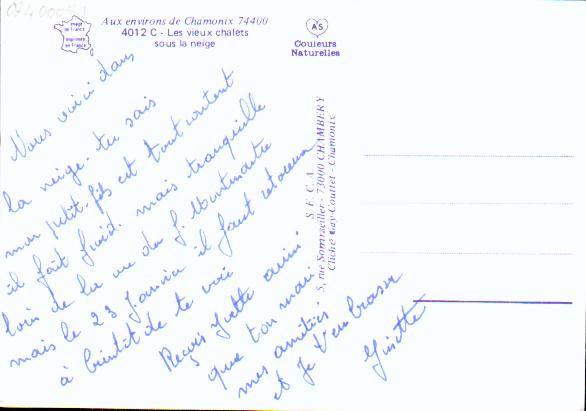 Aux environs de Chamonix 74400
4012 C - Les vieux chalets
sous la neige
Image
de France
Imprimée
en France
AS
Couleurs
Naturelles
Nous voici dans
la neige. tu sais
mon petit-fils est tout content
il fait froid. mais tranquille
loin de la rue du F. Montmartre
mais le 23 Janvier il faut
à bientôt de te voir
Reçois Yvette ainsi
que ton mari
mes amitiés
et Je t'embrasse
Ginette
S. E. C. A.
5, rue Sommeiller - 73000 CHAMBERY
Cliché Gay-Couttet - Chamonix